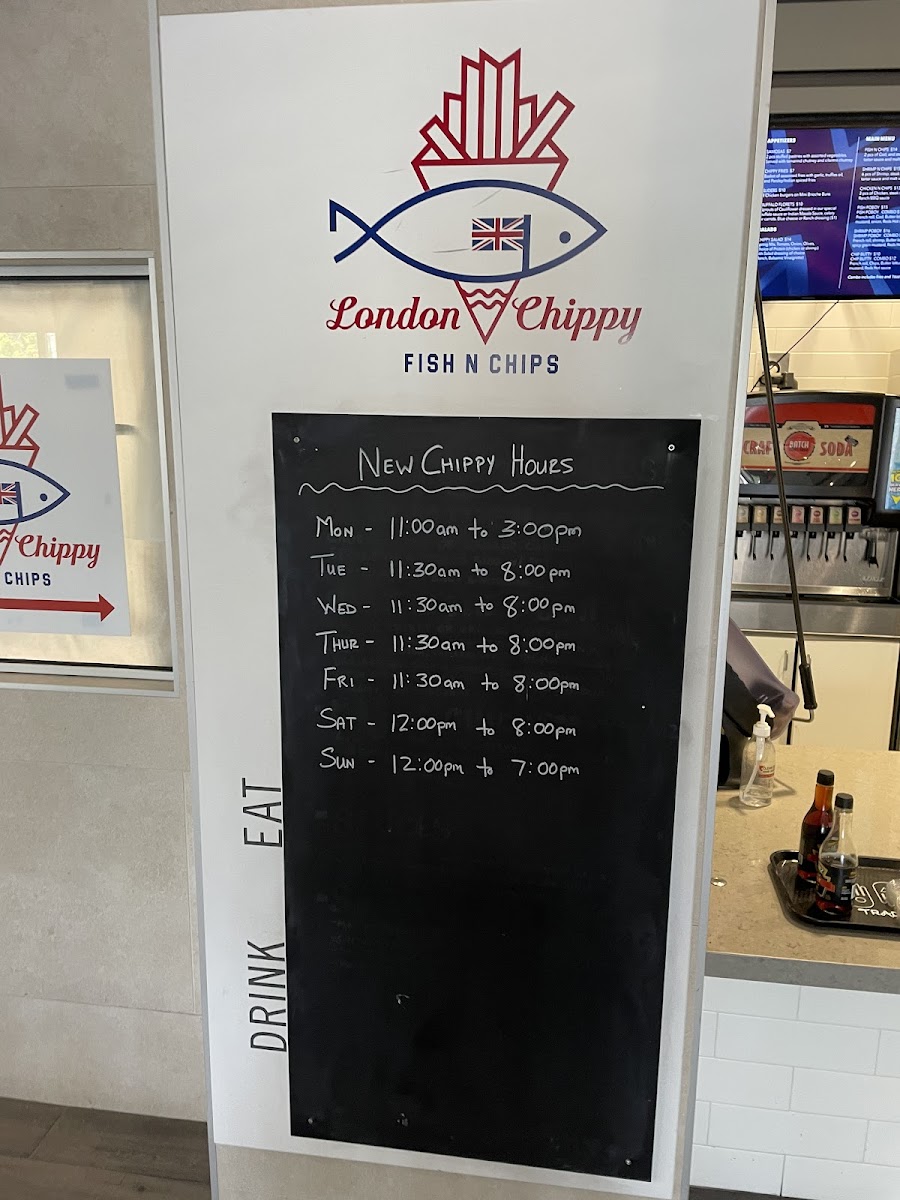 London Chippy
FISH N CHIPS
NEW CHIPPY HOURS
MON - 11:00am to 3:00pm
TUE - 11:30am to 8:00pm
WED - 11:30am to 8:00pm
THUR - 11:30am to 8:00pm
FRI - 11:30am to 8:00pm
SAT - 12:00pm to 8:00pm
SUN - 12:00pm to 7:00pm
DRINK EAT
Chippy
CHIPS
APPETIZERS
MAIN MENU
FISH N CHIPS $14
CRAF BATCH SODA